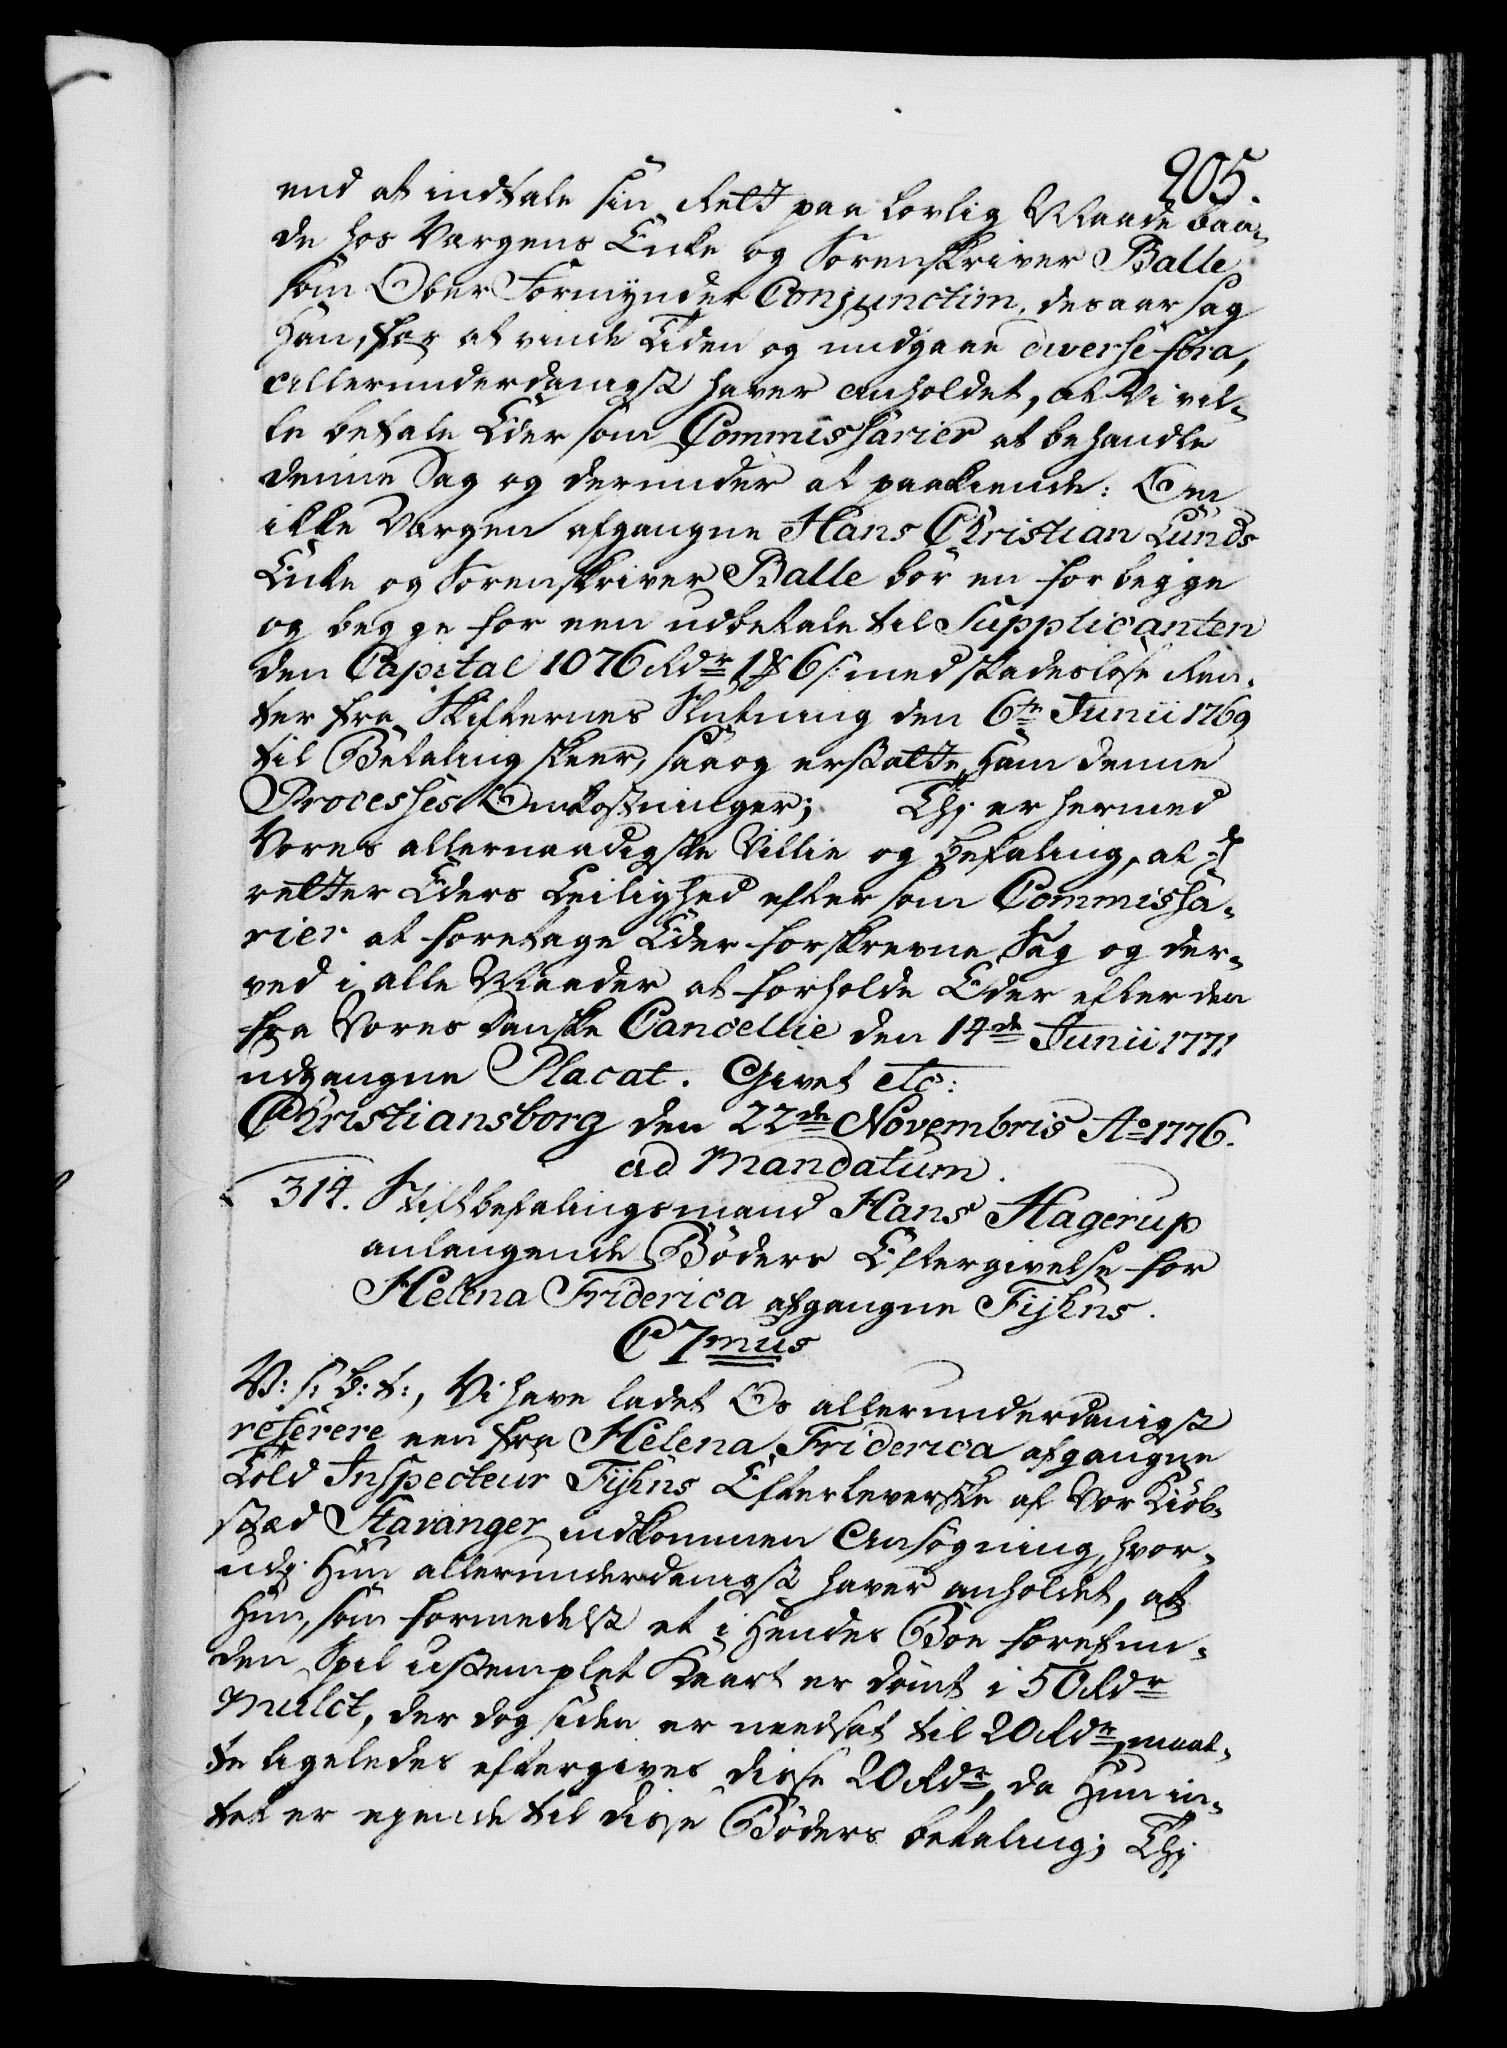 205.
end at indtale sin Rett paa lovlig Maade baa-
de hos Værgens Encke og Sorenskriver Balle
som Ober Formynder Conjunctim, desaarsag
Han, for at vinde Tiden og undgaae diverse fora,
allerunderdanigst haver anholdet, at Vi vil-
le befale Eder som Commissarier at behandle
denne Sag og derunder at paakiende: Om
ikke Værgen afgangne Hans Christian Lunds
Encke og Sorenskriver Balle bör en for begge
og begge for een udbetale til Supplicanten
den Capital 1076 Rdr 1 ꝳ 6 s: med skadeslöse Ren-
ter fra Skifternes Slutning den 6te Junii 1769
til Betaling skeer, saa og erstatte Ham denne
Processes Omkostninger; Thi er hermed
Vores allernaadigste Villie og befaling, at I
retter Eders Leilighed efter som Commissa-
rier at foretage Eder forskrevne Sag og der-
ved i alle Maader at forholde Eder efter den
fra Vores danske Cancellie den 14de Junii 1771
udgangne Placat. Givet etc:
Christiansborg den 22de Novembris Ao 1776.
ad Mandatum.
314. Stiftbefalingsmand Hans Hagerup
anlangende Böders Eftergivelse for
Helena Friderica afgangne Fijhns.
C 7mus
V: S: B: t:, Vi have ladet Os allerunderdanigst
referere een fra Helena Friderica afgangne
Told Inspecteur Fijhns Efterleverske af Vor Kiöb-
stæd Stavanger indkommen Ansögning, hvor-
udj Hun allerunderdanigst haver anholdet, at
Hun, som formedelst et i Hendes Boe forefun-
den Spil ustemplet Kaart er dömt i 50 Rdr
Mulct, der dog siden er needsat til 20 Rdr, maat-
te ligeledes eftergives disse 20 Rdr, da Hun in-
tet er eyende til disse Böders betaling; Thi